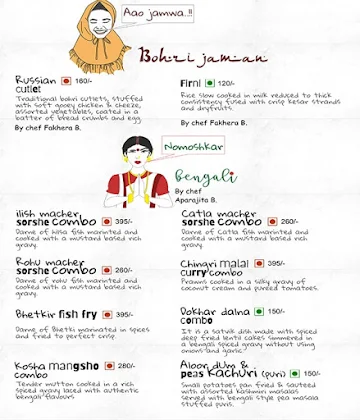 Aao jamwa..!!
Bohri jaman
Russian 180/-
cutlet
Traditional bohri cutlets, stuffed
with soft gooey chicken & cheeze,
assorted vegetables, coated in a
batter of bread crumbs and egg
By chef Fakhera B.
Firni 120/-
Rice slow cooked in milk reduced to thick
consistency fused with crisp kesar strands
and dryfruits.
By chef Fakhera B.
Nomoshkar
Bengali
By chef
Aparajita B.
ilish macher
sorshe combo 395/-
Darne of hilsa fish marinated and
cooked with a mustard based rich
gravy.
Catla macher
sorshe combo 260/-
Darne of Catla fish marinated and
cooked with a mustard based rich
gravy.
Rohu macher
sorshe combo 260/-
Darne of rohu fish marinated and
cooked with a mustard based rich
gravy.
Chingri malai 395/-
curry combo
Prawns cooked in a silky gravy of
coconut cream and pureed tomatoes.
Bhetkir fish fry 395/-
Darne of Bhetki marinated in spices
and fried to perfect crisp.
Dokhar dalna 150/-
combo
It is a satvik dish made with spiced
deep fried lentil cakes simmered in
a bengali spiced gravy without using
onions and garlic
Kosha mangsho 280/-
combo
Tender mutton cooked in a rich
spiced gravy laced with authentic
bengali flavours
Aloor dum &
peas kachuri (puri) 150/-
Small potatoes pan fried & sauteed
with assorted kashmiri masalas
served with bengali style pea masala
stuffed puris.